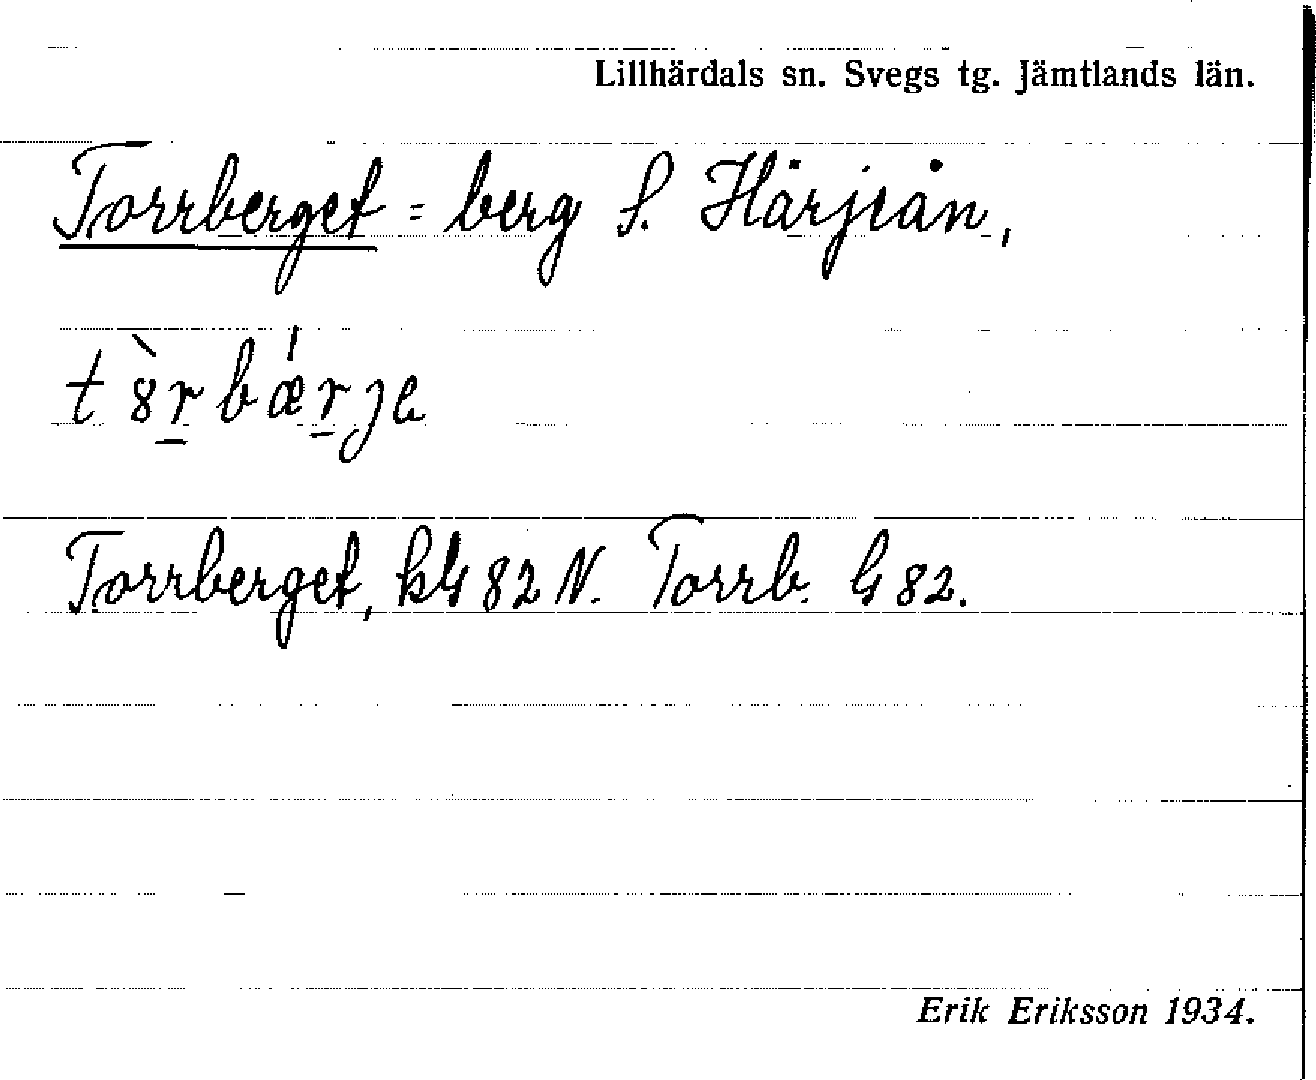 Lillhärdals sn. Svegs tg. Jämtlands län.
Torrberget = berg S. Härjeån,
t 8̀ r̲ b ǽ r̲ j e
Torrberget, kbl 82 N. Torrb. bl 82.
Erik Eriksson 1934.